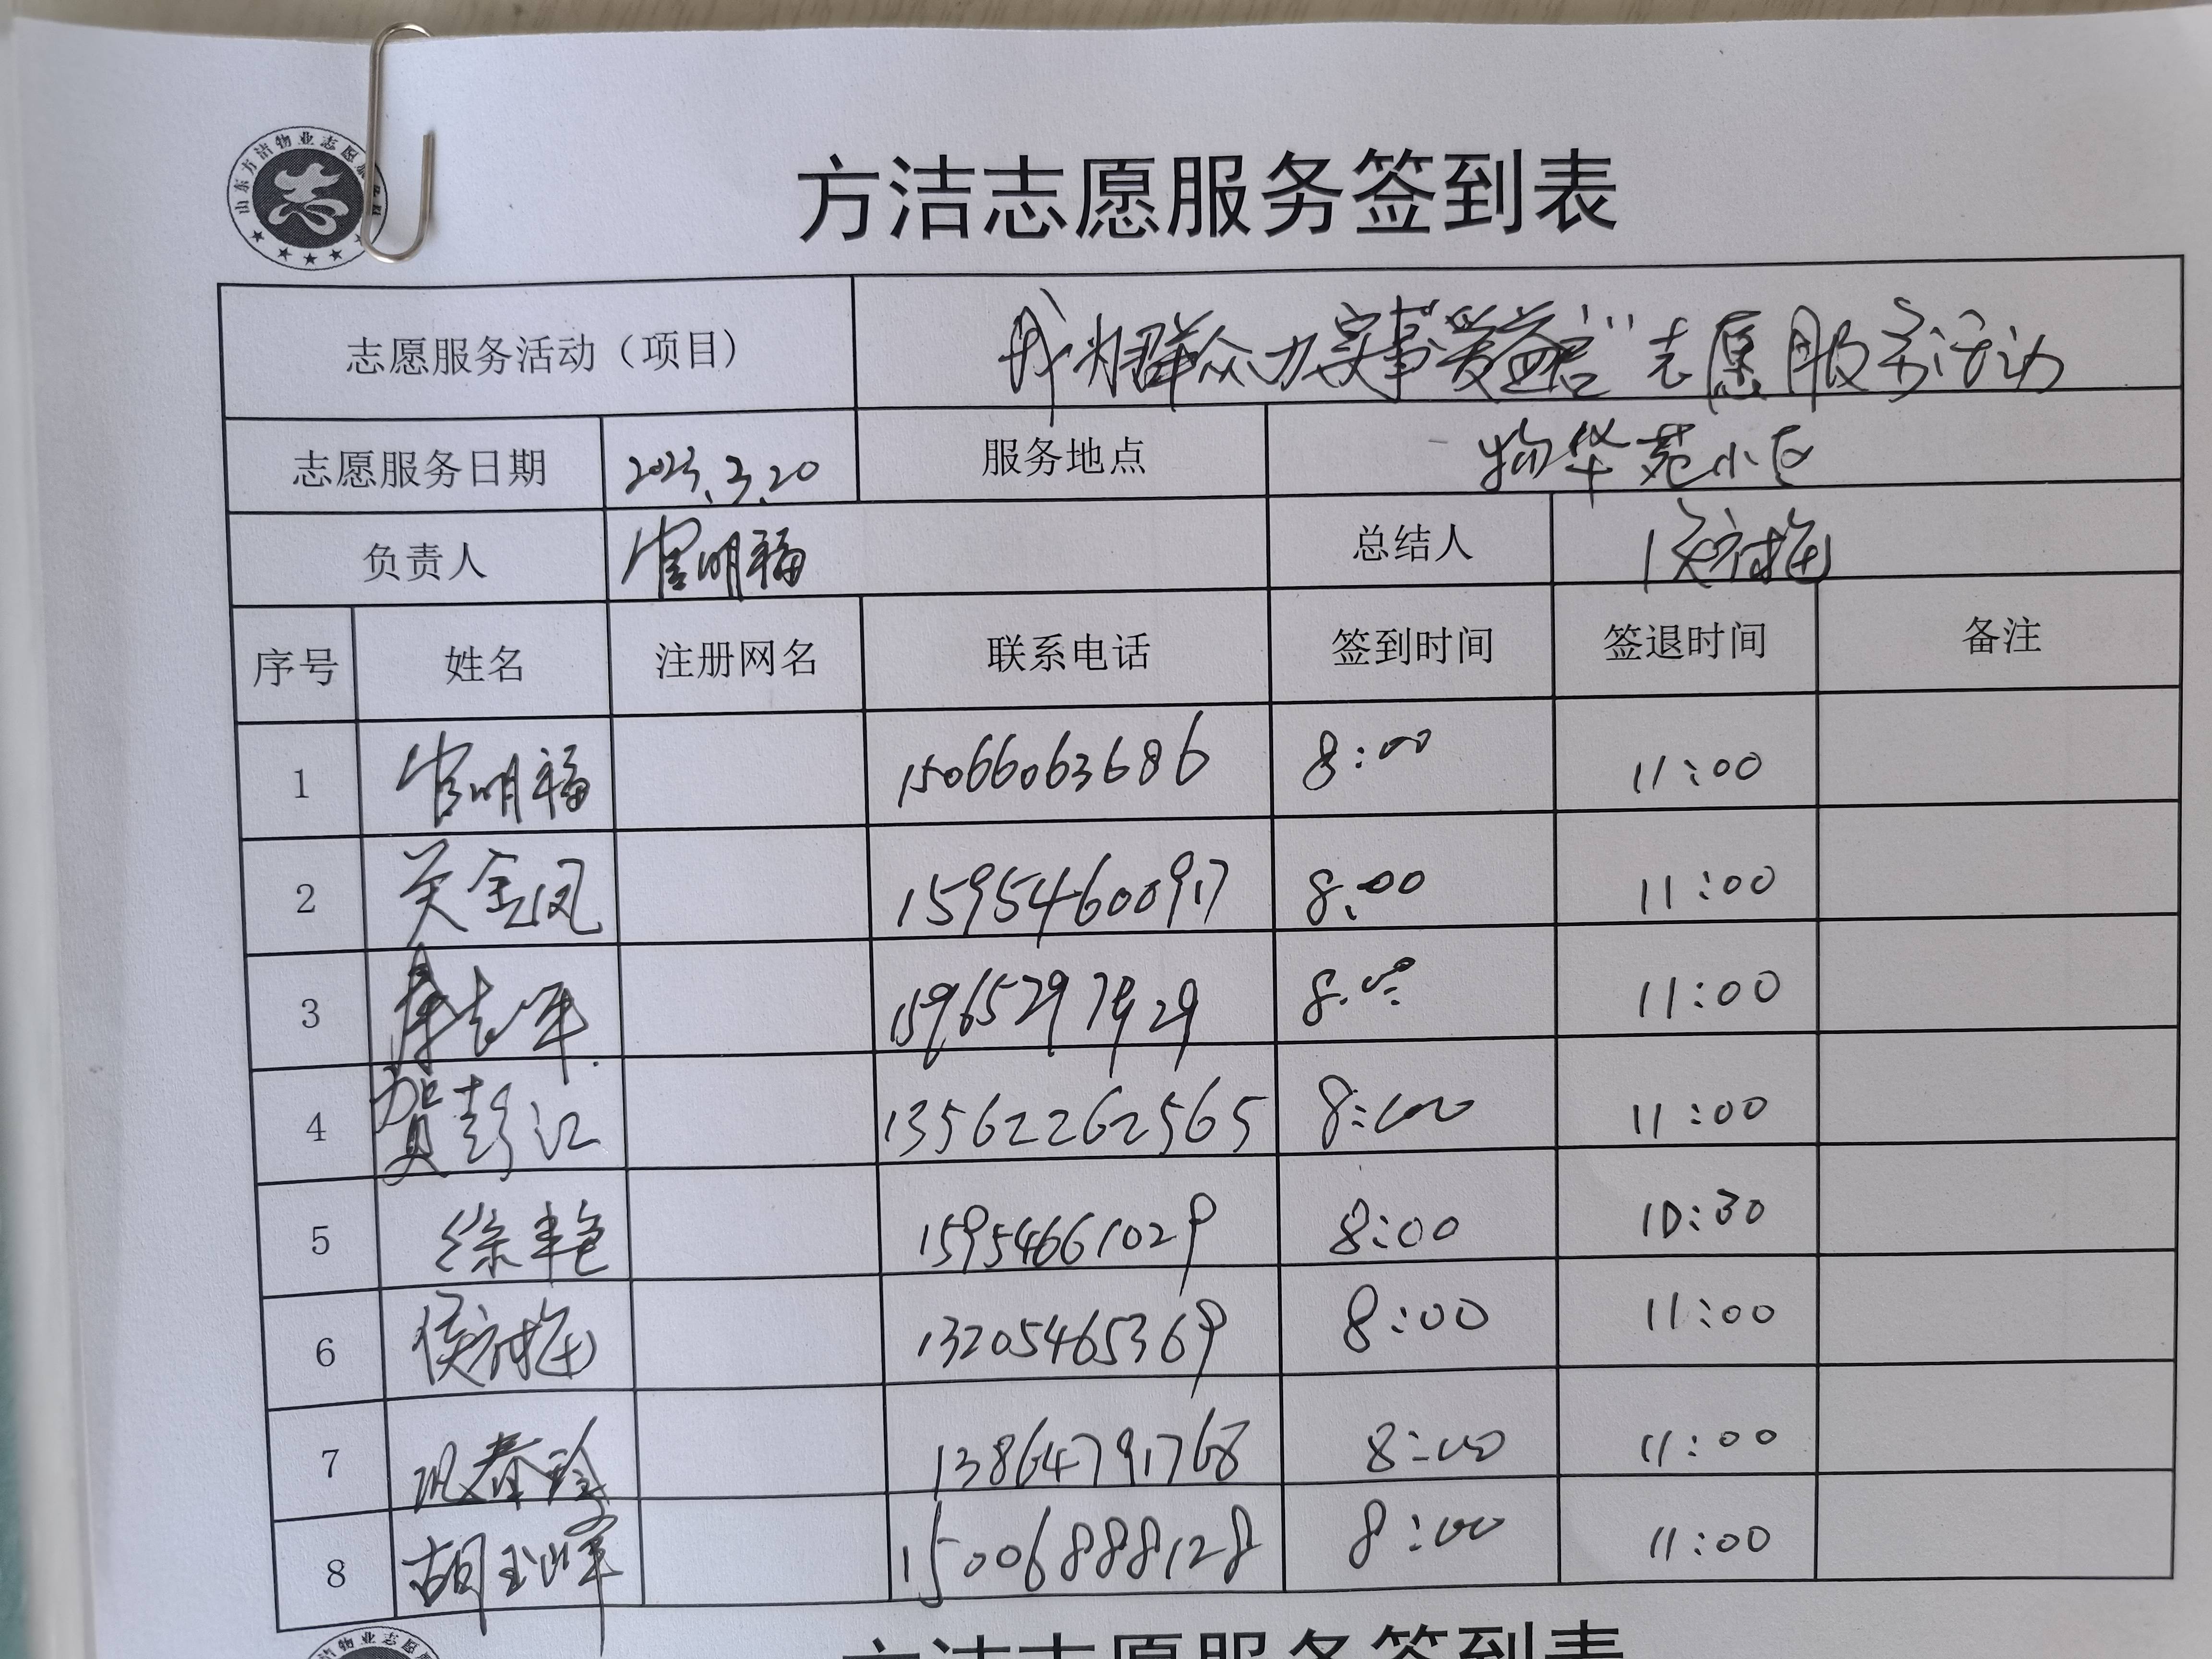 山东方洁物业志愿服
志
方洁志愿服务签到表
志愿服务活动（项目） 我为群众办实事 志愿服务活动
志愿服务日期 2023.3.20 服务地点 物华苑小区
负责人 官明福 总结人 侯树梅
序号 姓名 注册网名 联系电话 签到时间 签退时间 备注
1 官明福 15066063686 8:00 11:00
2 关金凤 15954600917 8:00 11:00
3 15965297929 8:00 11:00
4 贺彭江 13562262565 8:00 11:00
5 徐丰艳 15954661029 8:00 10:30
6 侯树梅 13205465369 8:00 11:00
7 巩春玲 13864791768 8:00 11:00
8 胡玉峰 15006888128 8:00 11:00
物业志愿
方洁志愿服务签到表